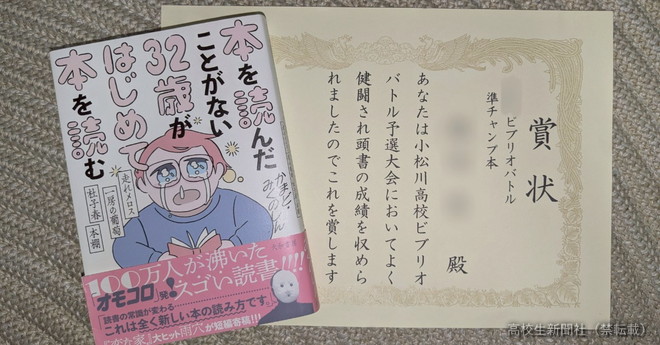 本を読んだ
ことがない
32歳が
はじめて
本を読む
かまど、
みくのしん
走れメロス
一房の葡萄
杜子春
本棚
大和書房
100万人が沸いた
「オモコロ」発!スゴい読書!!!!
「読書の常識が変わる……
これは全く新しい本の読み方です。」
『変な家』大ヒット雨穴が短編寄稿!!!
賞状
ビブリオバトル
準チャンプ本
殿
あなたは小松川高校ビブリオ
バトル予選大会においてよく
健闘され頭書の成績を収めら
れましたのでこれを賞します
高校生新聞社(禁転載)